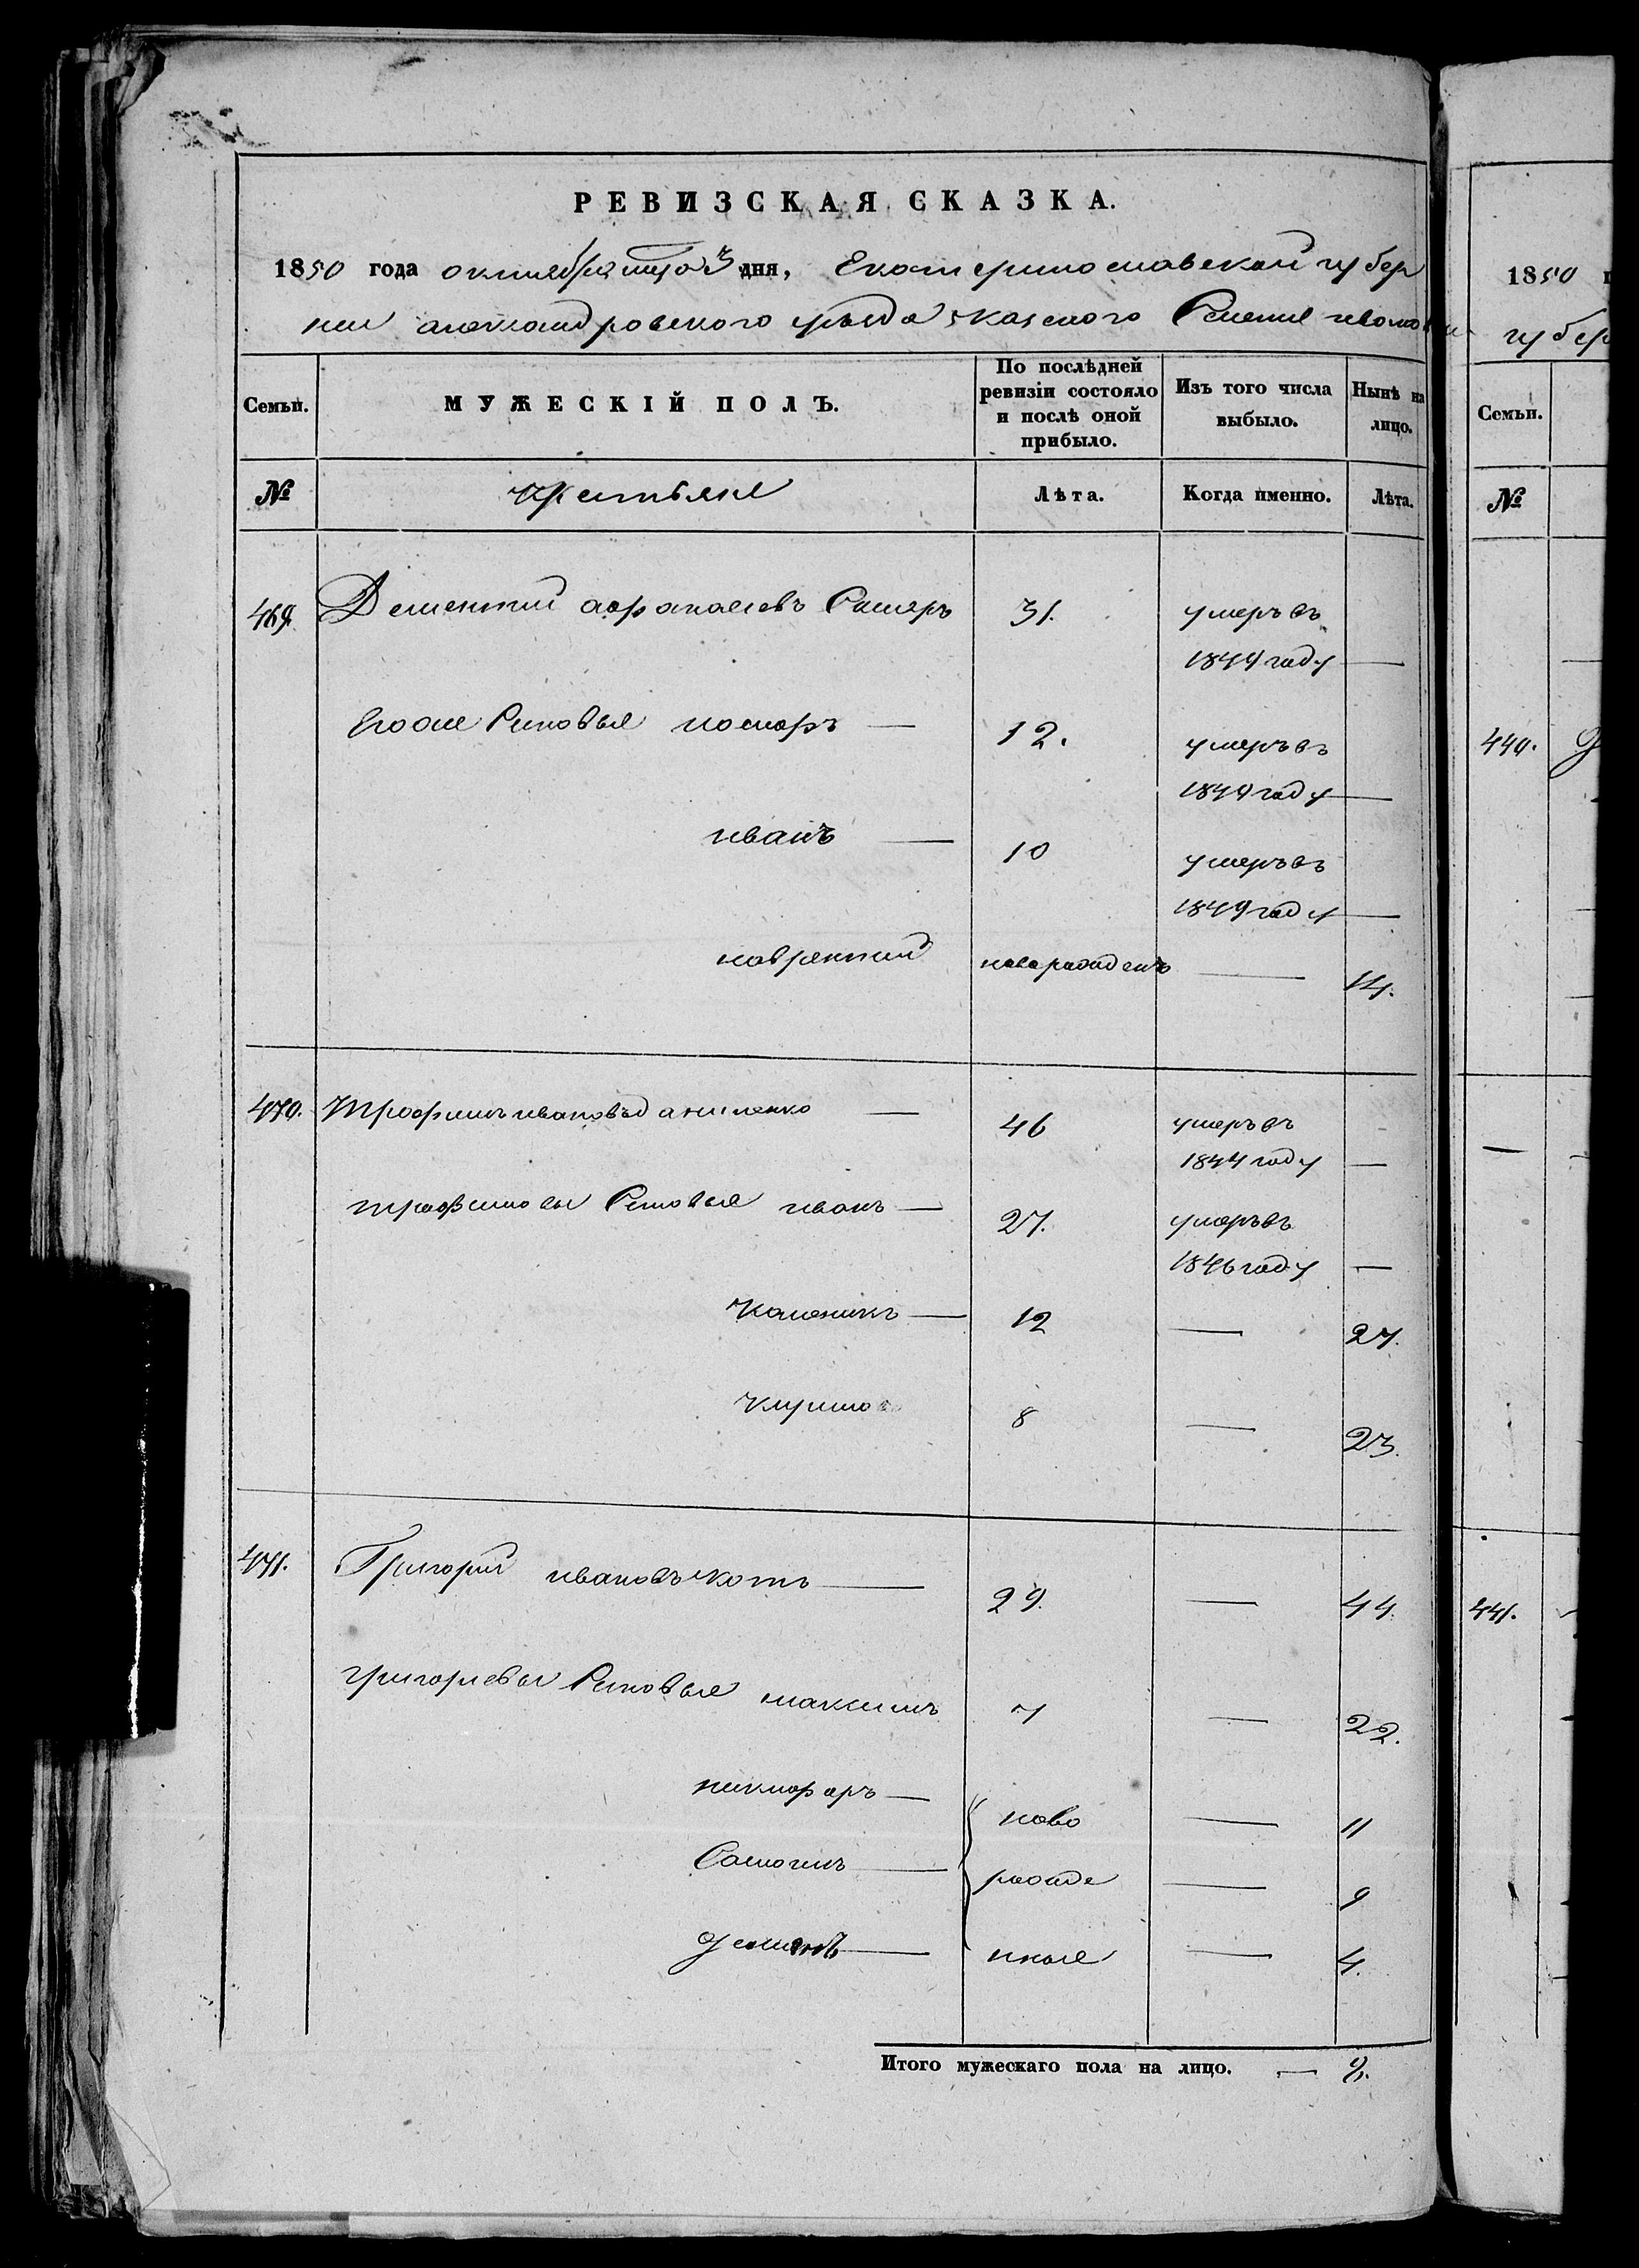 РЕВИЗСКАЯ СКАЗКА.
1850 года октября дня, Екатеринославской губер
нии александровского уезда казеного Селения
Семьи. МУЖЕСКІЙ ПОЛЪ. По послѣдней ревизіи состояло и послѣ оной прибыло. Изъ того числа выбыло. Нынѣ на лицо.
№ Крестьяне Лѣта. Когда именно. Лѣта.
469. Дементий афанасиевъ 31. умеръ въ
1844 году —
его Сыновья — 12. умеръ въ
1849 году —
иванъ — 10 умеръ въ
1849 году —
лаврентий новорожденъ — 14.
470. Трофимъ ивановъ даниленко — 46 умеръ въ
1844 году —
трофимовы Сыновья иванъ — 27. умеръ въ
1846 году —
каленикъ — 12 — 27.
8 — 23.
471. Григорий ивановъ котъ — 29. — 44.
григориевы Сыновья максимъ 7 — 22.
никифоръ — ново — 11
— рожде — 9
— нные — 4.
Итого мужескаго пола на лицо. — 8.
1850
губер
Семьи.
№
440.
441.